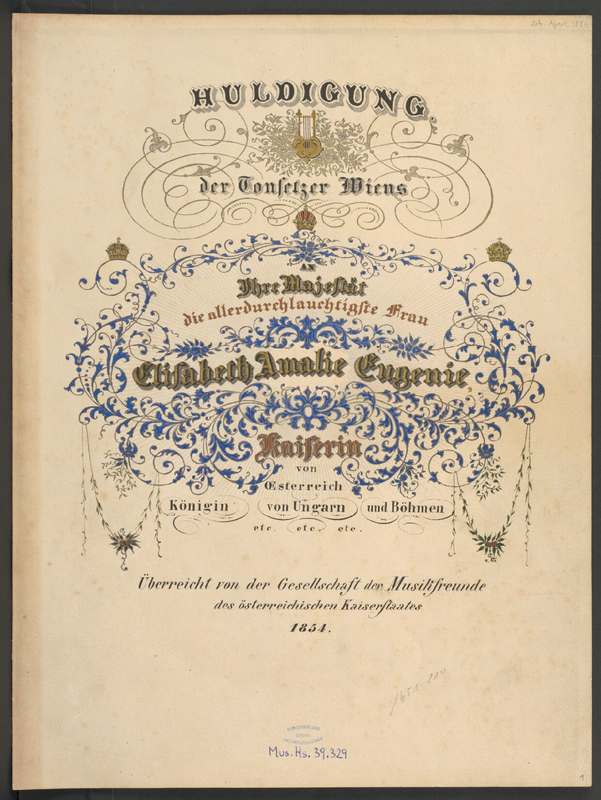 HULDIGUNG.
der Tonſetzer Wiens
AN
Ihre Majeſtät
die allerdurchlauchtigſte Frau
Eliſabeth Amalie Eugenie,
Kaiſerin
von
Œsterreich
Königin von Ungarn und Böhmen
etc. etc. etc.
Überreicht von der Gesellschaft der Musikfreunde
des österreichischen Kaiserſtaates
1854.
Mus. Hs. 39.329
1